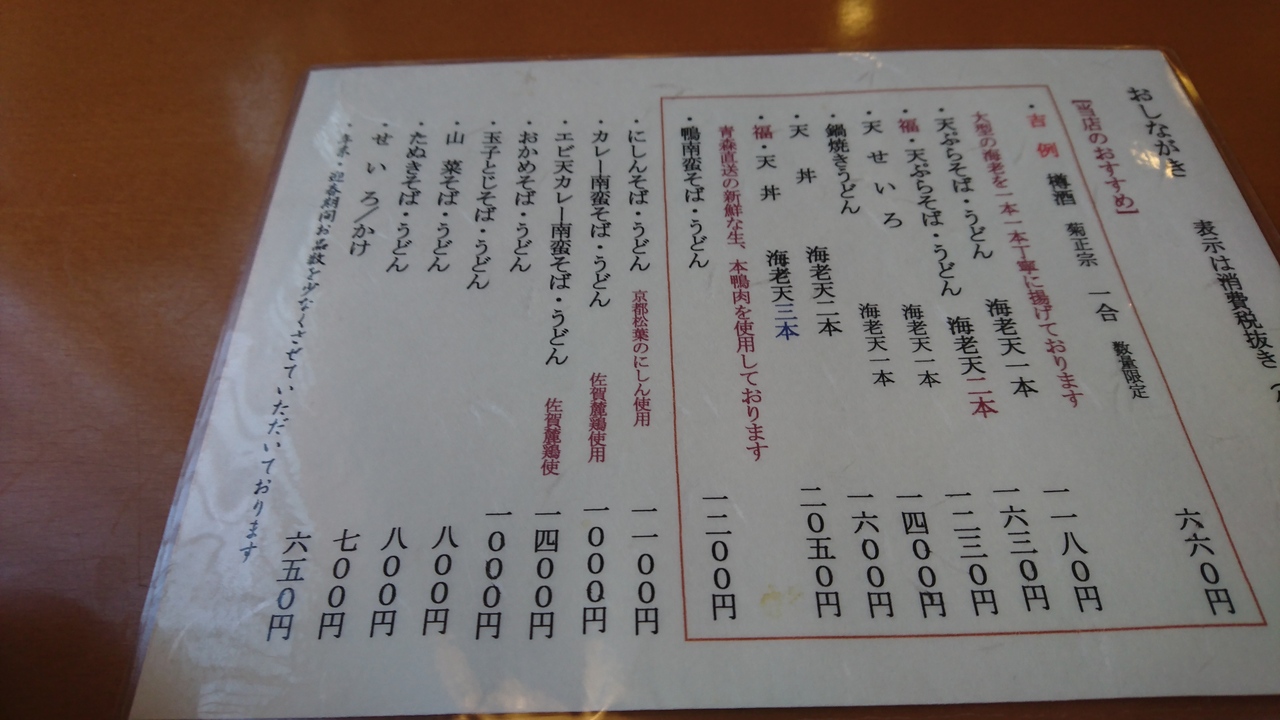 おしながき 表示は消費税抜き
【当店のおすすめ】
・吉例 樽酒 菊正宗 一合 数量限定 六六０円
大型の海老を一本一本丁寧に揚げております
・天ぷらそば・うどん 海老天一本 一一八０円
・福・天ぷらそば・うどん 海老天二本 一六三０円
・天せいろ 海老天一本 一二三０円
・鍋焼きうどん 海老天一本 一四００円
・天丼 海老天二本 一六００円
・福・天丼 海老天三本 二０五０円
青森直送の新鮮な生、本鴨肉を使用しております
・鴨南蛮そば・うどん 一二００円
・にしんそば・うどん 京都松葉のにしん使用 一一００円
・カレー南蛮そば・うどん 佐賀麓鶏使用 一０００円
・エビ天カレー南蛮そば・うどん 佐賀麓鶏使 一四００円
・おかめそば・うどん 一０００円
・玉子とじそば・うどん 八００円
・山菜そば・うどん 八００円
・たぬきそば・うどん 七００円
・せいろ／かけ 六五０円
・年末・迎春期間お品数を少なくさせていただいております